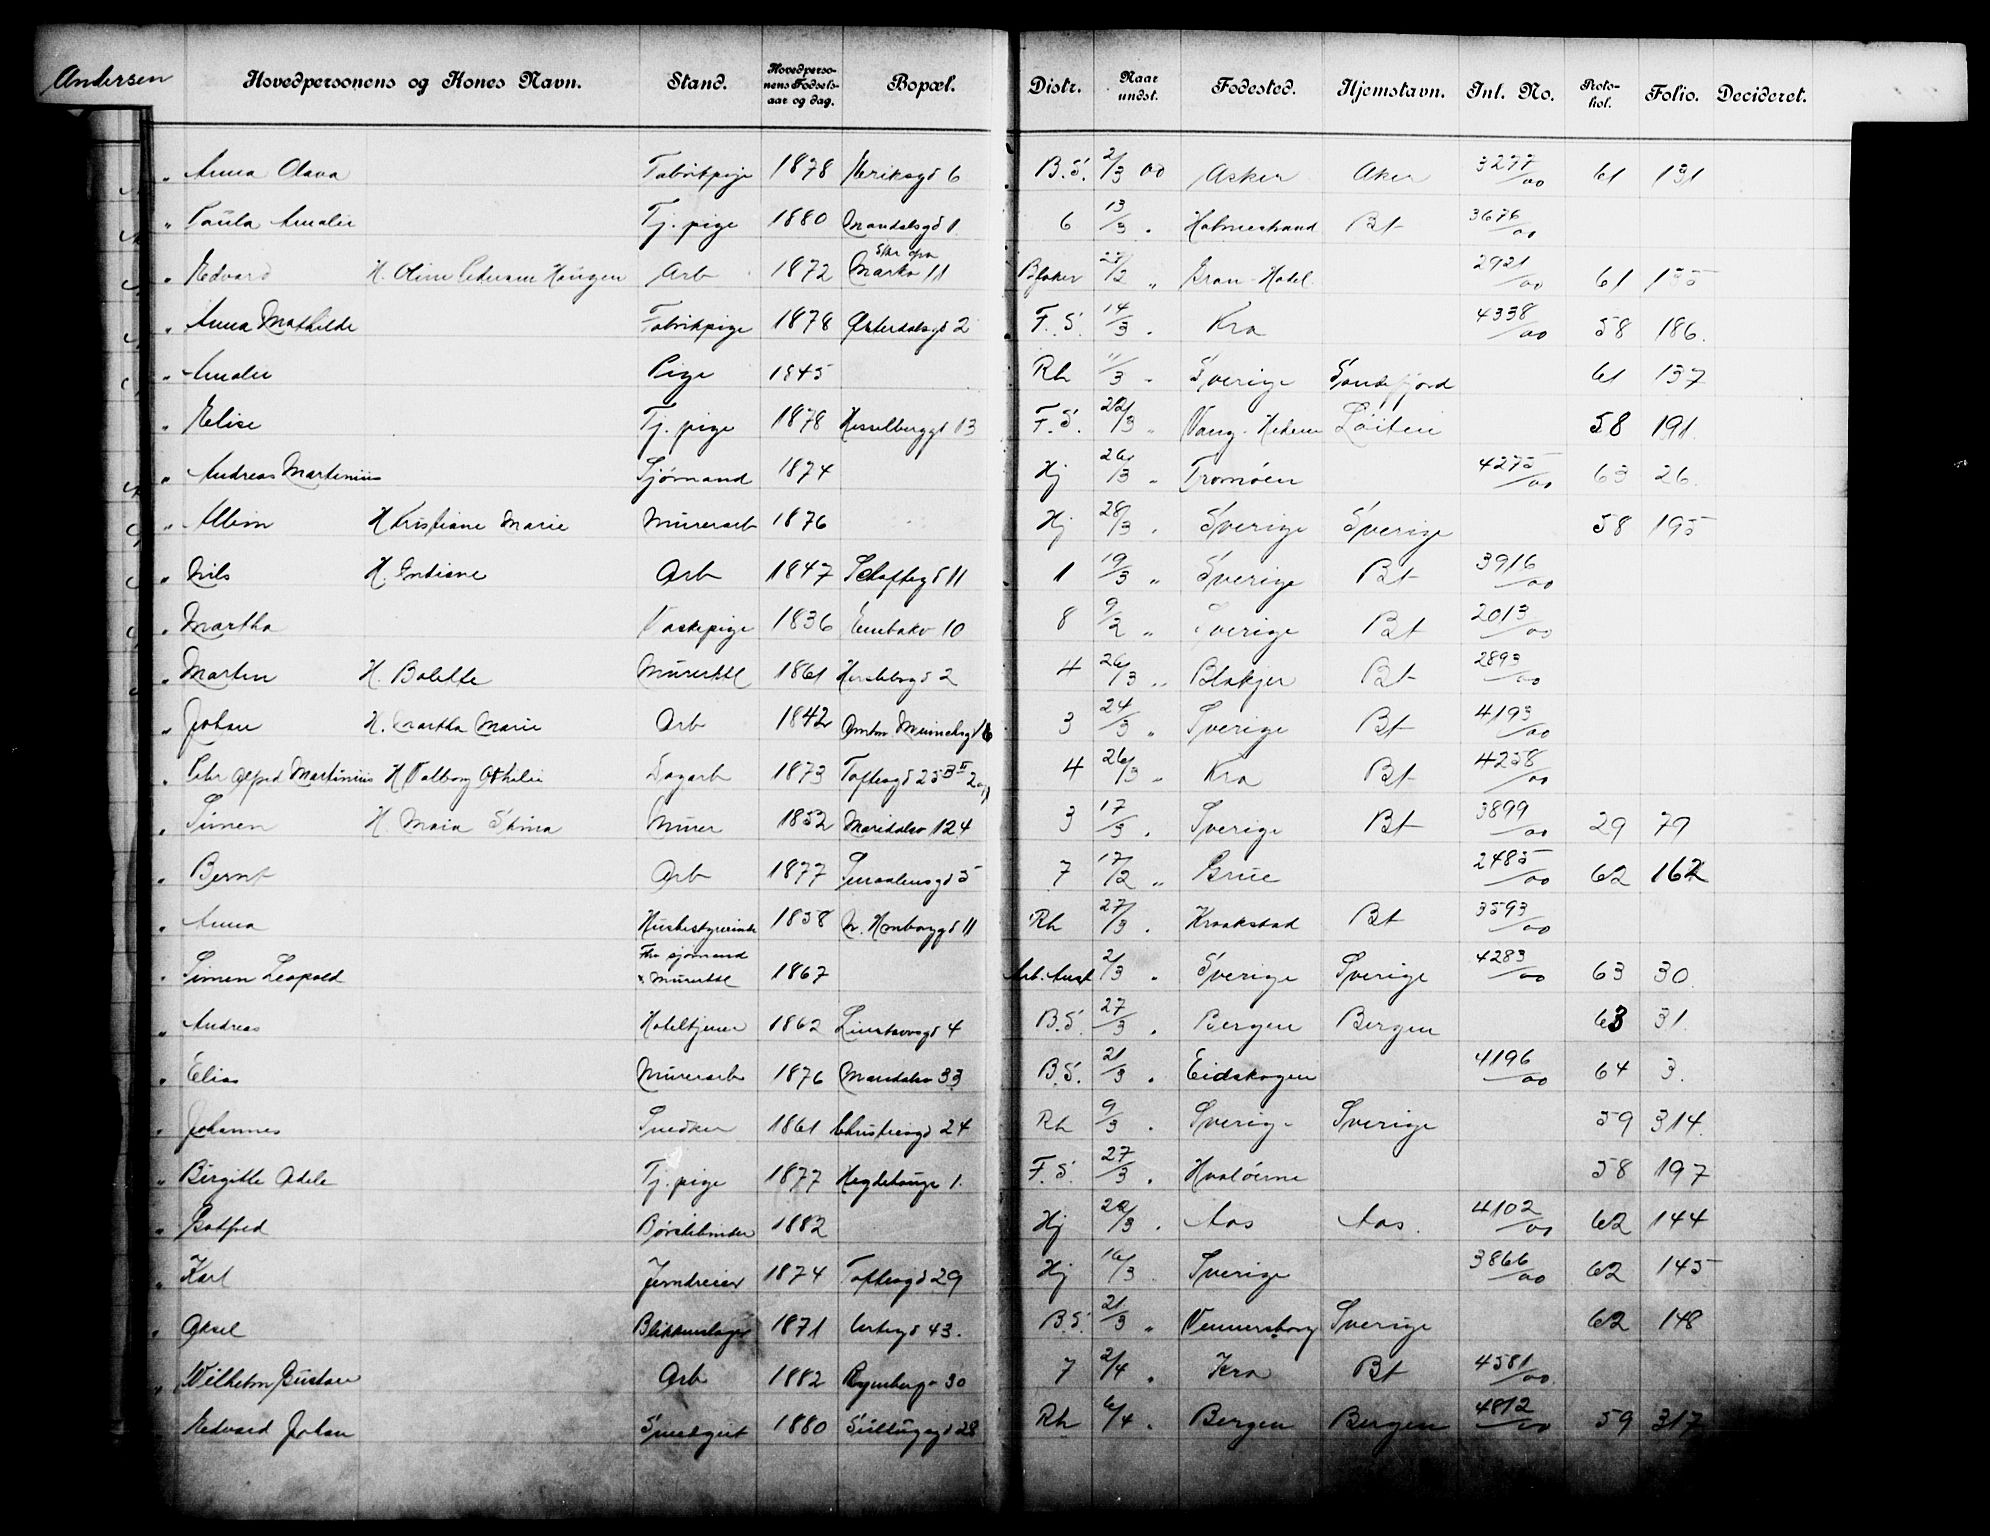 Andersen Hovedpersonens og Kones Navn. Stand. Hovedpersonens Fødselsaar og dag. Bopæl. Distr. Naar undst. Fødested. Hjemstavn. Int. No. Protokol. Folio. Decideret.
" Anna Olava Fabrikpige 1878 Eriksgd 6 B.S. 2/3 00 Asker Aker 3277/00 61 131
" Paula Amalie Tj. pige 1880 Mandalsgd 1 6 13/3 " Holmestrand Bt 3676/00
" Edvard H. Oline Pedersen Haugen Arb 1872 Markv 11 Bjaker 27/2 " Gran - Hadel. 2921/00 61 135
" Anna Mathilde Fabrikpige 1878 Østerdalsgd 2 F.S. 14/3 " Kra 4338/00 58 186.
" Amalie Pige 1845 Rh 11/3 " Sverige Sandefjord 61 137
" Elise Tj. pige 1878 Hesselberggd 13 F.S. 22/3 " Vang - Hedem Løiten 58 191.
" Andreas Martinius Sjømand 1874 Hj 26/3 " Tromøen 4275/00 63 26.
" Albin H Kristiane Marie Murerarb 1876 Hj 28/3 " Sverige Sverige 58 195
" Nils H. Indiane Arb 1847 Schaftegd 11 1 19/3 " Sverige Bt 3916/00
" Martha Vaskepige 1836 Enebakv 10 8 9/2 " Sverige Bt 2013/00
" Martin H. Bolette Murersvd 1861 Herslebsgd 2 4 26/3 " Blakjer Bt 2893/00
" Johan H. Martha Marie Arb 1842 3 24/3 " Sverige Bt 4193/00
" Alfred Martinius H Valborg Othilie Dagarb 1873 Toftesgd 25 4 26/3 " Kra Bt 4258/00
" Simen H. Maria Stina Murer 1852 Maridalsv 124 3 17/3 " Sverige Bt 3899/00 29 79
" Bernt Arb 1877 Smaalensgd 5 7 17/2 " Grue 2485/00 62 162
" Anna Husbestyrerinde 1858 11 Rh 27/3 " Kraakstad Bt 3593/00
" Simen Leopold Fhv sjømand x Murersvd 1867 Arb. Anst 2/3 " Sverige Sverige 4283/00 63 30.
" Andreas Hoteltjener 1862 Linstowsgd 4 B.S. 27/3 " Bergen Bergen 63 31.
" Elias Murerarb 1876 Maridalsv 33 B.S. 21/3 " Eidskogen 4196/00 64 3.
" Johannes Snedker 1861 Christiesgd 24 Rh 9/3 " Sverige Sverige 59 314.
" Birgitte Adele Tj. pige 1877 Hegdehauge 1. F.S. 27/3 " Hvaløerne 58 197
" Gotfred Børstebinder 1882 Hj 22/3 " Aas Aas. 4102/00 62 144
" Karl Jerndreier 1874 Toftesgd 29 Hj 16/3 Sverige 3866/00 62 145
" Aksel Blikkenslager 1871 Urtegd 43. B.S. 21/3 " Vennersborg Sverige 62 148
" Wilhelm Gustav Arb 1882 Rynberg " 30 7 2/4 " Kra Bt 4581/00
Edvard Johan Snedkersv 1880 28 Rh 6/4 " Bergen Bergen 4812/00 59 317